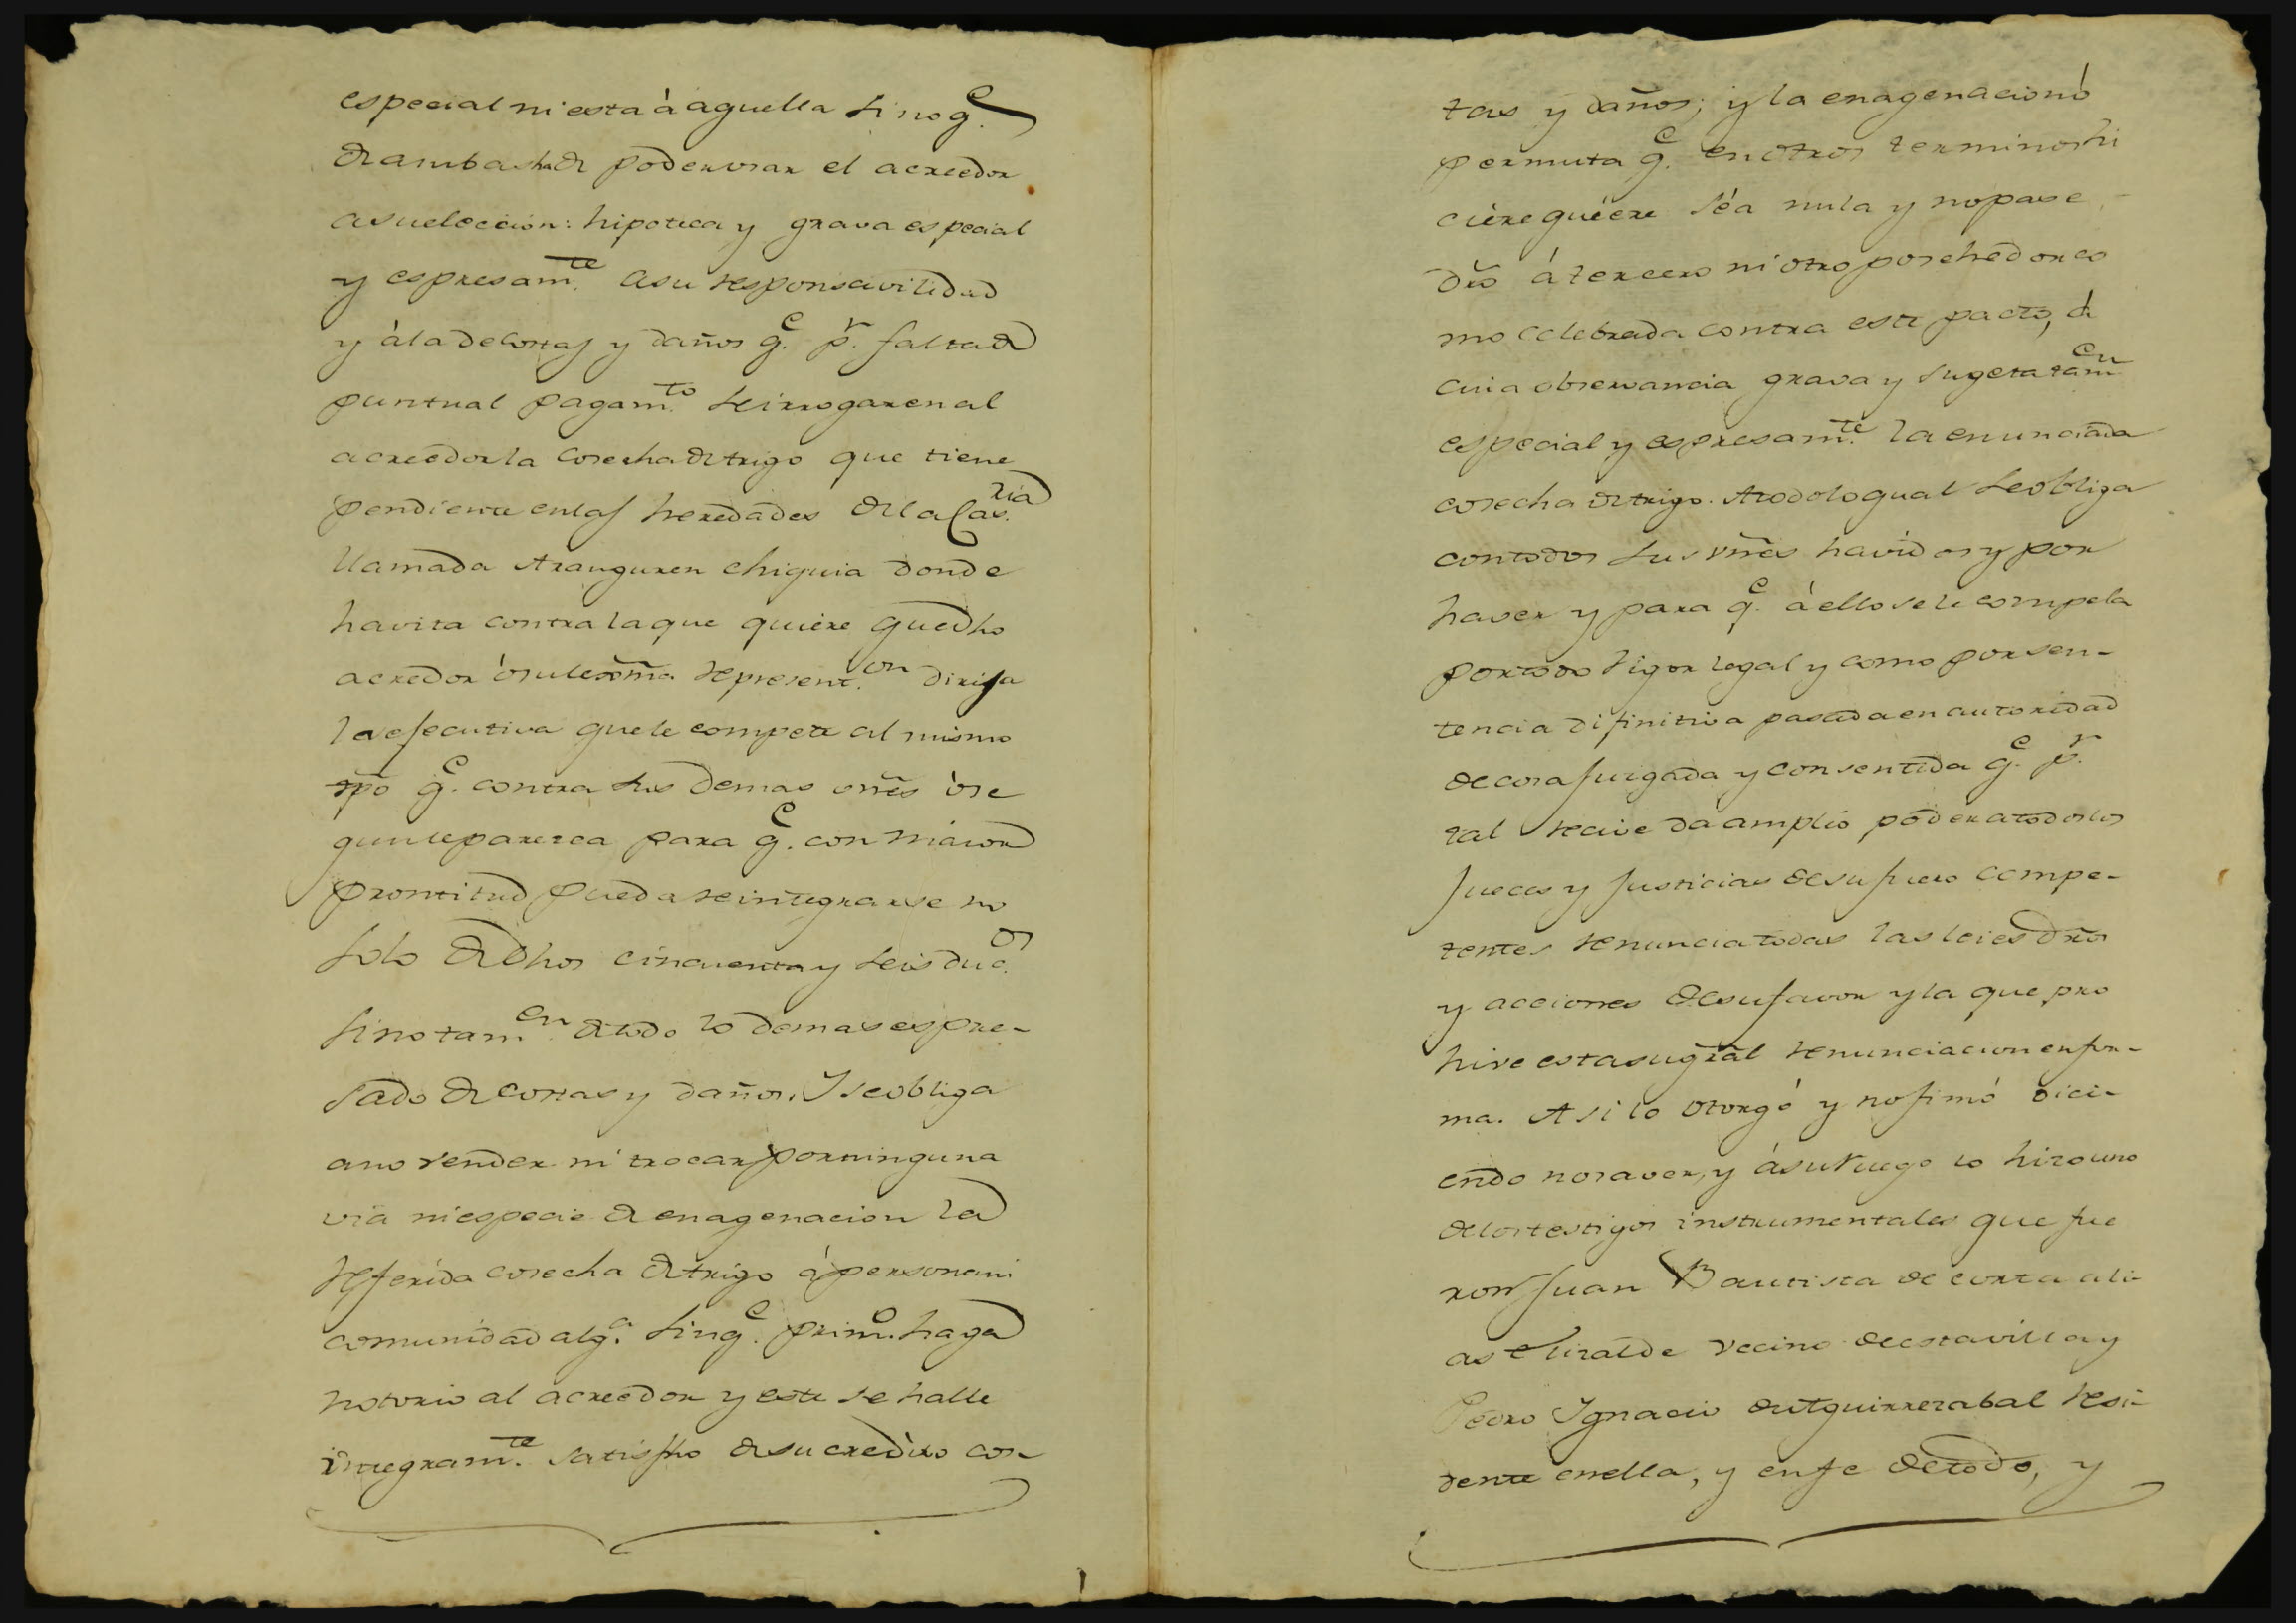 especial ni esta à aquella sino q.e
de ambas ha de poder usar el acreedor
a su eleccion: hipoteca y grava especial
y espresam.te a su responsavilidad
y à la de costas y daños q.e p.r falta de
puntual pagam.to se irrogaren al
acreedor la cosecha de trigo que tiene
pendiente en las heredades de la Cas.ria
llamada Aranguren chiquia donde
havita contra la que quiere que dho
acredor ò su lexma. represent.on dirija
la ejecutiva que le compete al mismo
tpo q.e contra sus demas vñes ò se
gun le paresca para q.e con maior
prontitud pueda reintegrarse no
solo de dhos cincuenta y seis duc.os
sino tam.en de todo lo demas espre-
sado de costas y daños. Y se obliga
a no vender ni trocar por ninguna
via ni especie de enagenacion la
referida cosecha de trigo à persona ni
comunidad alg.a sin q.e prim.o haga
notorio al acreedor y este se halle
integram.te satisfho de su credito cos-
tas y daños; y la enagenacion ó
permuta q.e en otros terminos hi
ciere quiere séa nula y no pase
dro á tercero ni otro posehedor co
mo celebrada contra este pacto, á
cuia observancia grava y sugeta tam.en
especial y espresam.te la enunciada
cosecha de trigo. A todo lo qual se obliga
con todos sus vñes havidos y por
haver y para q.e á ello se le compela
por todo rigor legal y como por sen-
tencia difinitiva pasada en autoridad
de cosa juzgada y consentida q.e p.r
tal recive da amplio poder a todos los
Jueces y Justicias de su fuero compe-
tentes renuncia todas las leies dros
y acciones de su favor y la que pro
hive esta su gral renunciacion en for-
ma. Asi lo otorgó y no fimó dici-
endo no saver, y á su ruego lo hizo uno
de los testigos instrumentales que fue
ron Juan Bautista de corta ali-
as Elizalde vecino de esta villa y
Pedro Ignacio de Aguirrezabal resi-
dente en ella, y en fe de todo, y